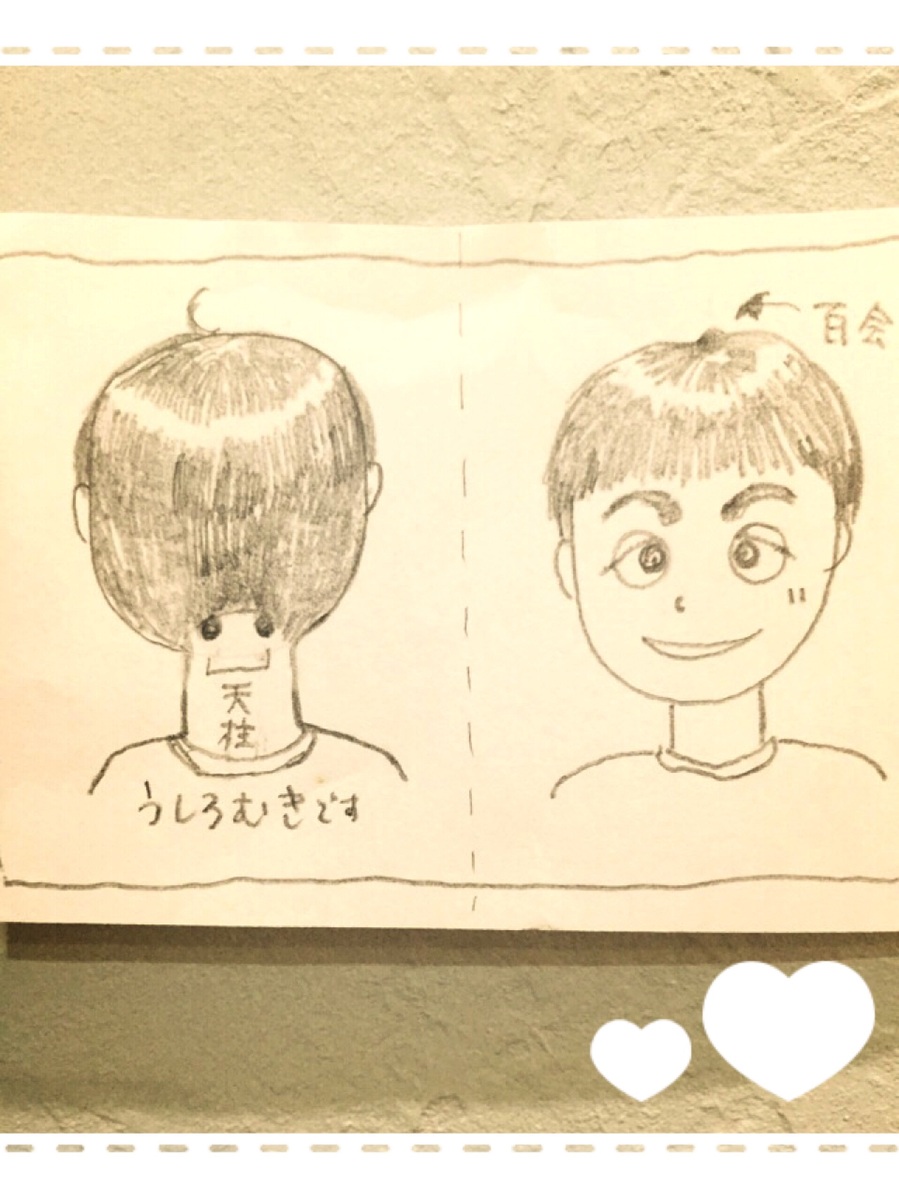 天柱
うしろむきです
百会